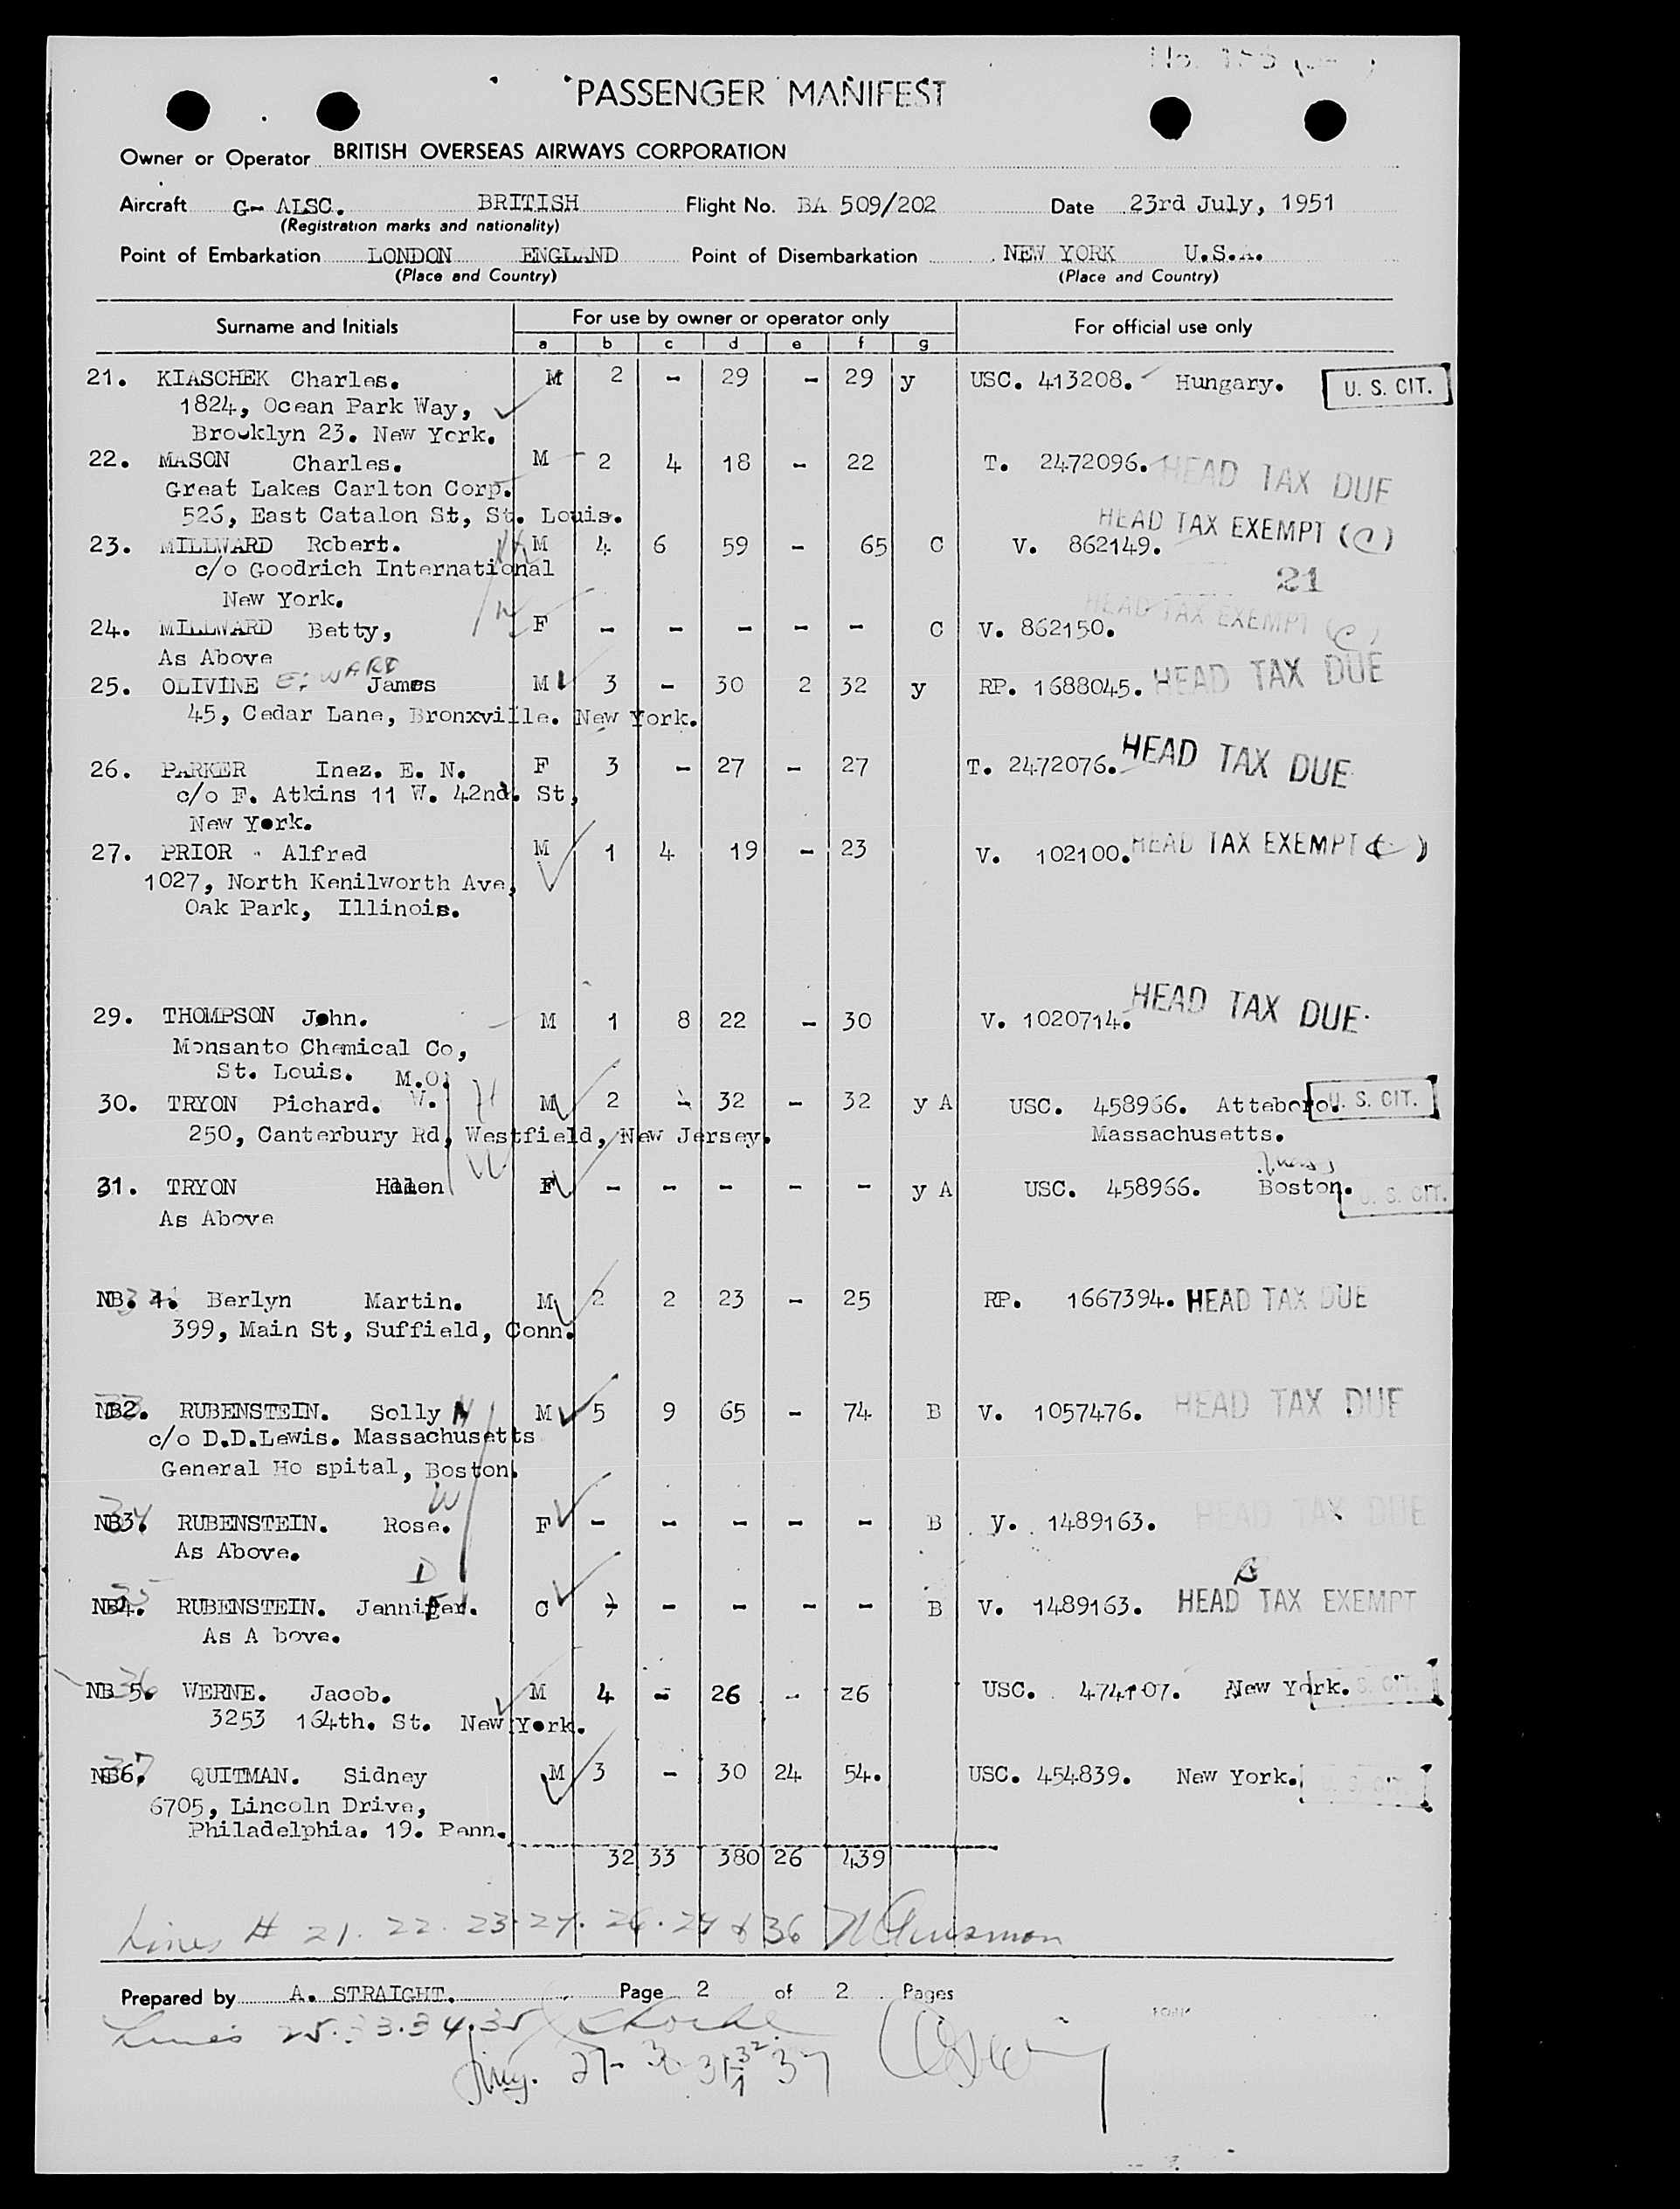 PASSENGER MANIFEST
Owner or Operator BRITISH OVERSEAS AIRWAYS CORPORATION
Aircraft G- ALSC. BRITISH Flight No. BA 509/202 Date 23rd July, 1951
(Registration marks and nationality)
Point of Embarkation LONDON ENGLAND Point of Disembarkation NEW YORK U.S.A.
(Place and Country) (Place and Country)
Surname and Initials For use by owner or operator only For official use only
a b c d e f g
21. KIASCHEK Charles. M 2 - 29 - 29 y USC. 413208. Hungary. U. S. CIT.
1824, Ocean Park Way,
Brooklyn 23. New York.
22. MASON Charles. M 2 4 18 - 22 T. 2472096. HEAD TAX DUE
Great Lakes Carlton Corp.
526, East Catalon St, St. Louis.
23. MILLWARD Robert. M 4 6 59 - 65 C V. 862149. HEAD TAX EXEMPT (C)
c/o Goodrich International
21
New York.
24. MILLWARD Betty, W F - - - - - C V. 862150. HEAD TAX EXEMPT (C)
As Above
25. OLIVINE EDWARD James M 3 - 30 2 32 y RP. 1688045. HEAD TAX DUE
45, Cedar Lane, Bronxville. New York.
26. PARKER Inez. E. N. F 3 - 27 - 27 T. 2472076. HEAD TAX DUE
c/o F. Atkins 11 W. 42nd. St,
New York.
27. PRIOR Alfred M 1 4 19 - 23 V. 102100. HEAD TAX EXEMPT ( )
1027, North Kenilworth Ave,
Oak Park, Illinois.
29. THOMPSON John. M 1 8 22 - 30 V. 1020714. HEAD TAX DUE
Monsanto Chemical Co,
St. Louis. M.O.
30. TRYON Pichard. W. H M 2 - 32 - 32 y A USC. 458966. Atteboro. U. S. CIT.
250, Canterbury Rd, Westfield, New Jersey. Massachusetts.
W
31. TRYON Hellen F - - - - - y A USC. 458966. Boston. U. S. CIT.
As Above
NB. 1. Berlyn Martin. M 2 2 23 - 25 RP. 1667394. HEAD TAX DUE
399, Main St, Suffield, Conn.
NB2. RUBENSTEIN. Solly H M 5 9 65 - 74 B V. 1057476. HEAD TAX DUE
c/o D.D.Lewis. Massachusetts
General Ho spital, Boston.
W
NB3. 34 RUBENSTEIN. Rose. F - - - - - B y. 1489163. HEAD TAX DUE
As Above.
D
NB4. 35 RUBENSTEIN. Jennifer. C - - - - - B V. 1489163. HEAD TAX EXEMPT
As A bove.
NB 5. 36 VERNE. Jacob. M 4 - 26 - 26 USC. 474107. New York. U. S. CIT.
3253 164th. St. New York.
NB6. 37 QUITMAN. Sidney M 3 - 30 24 54. USC. 454839. New York. U. S. CIT.
6705, Lincoln Drive,
Philadelphia. 19. Penn.
32 33 380 26 439
Lines # 21. 22. 23. 24. 26. 29 & 36
Prepared by A. STRAIGHT. Page 2 of 2 Pages
Lines 25. 33. 34. 35